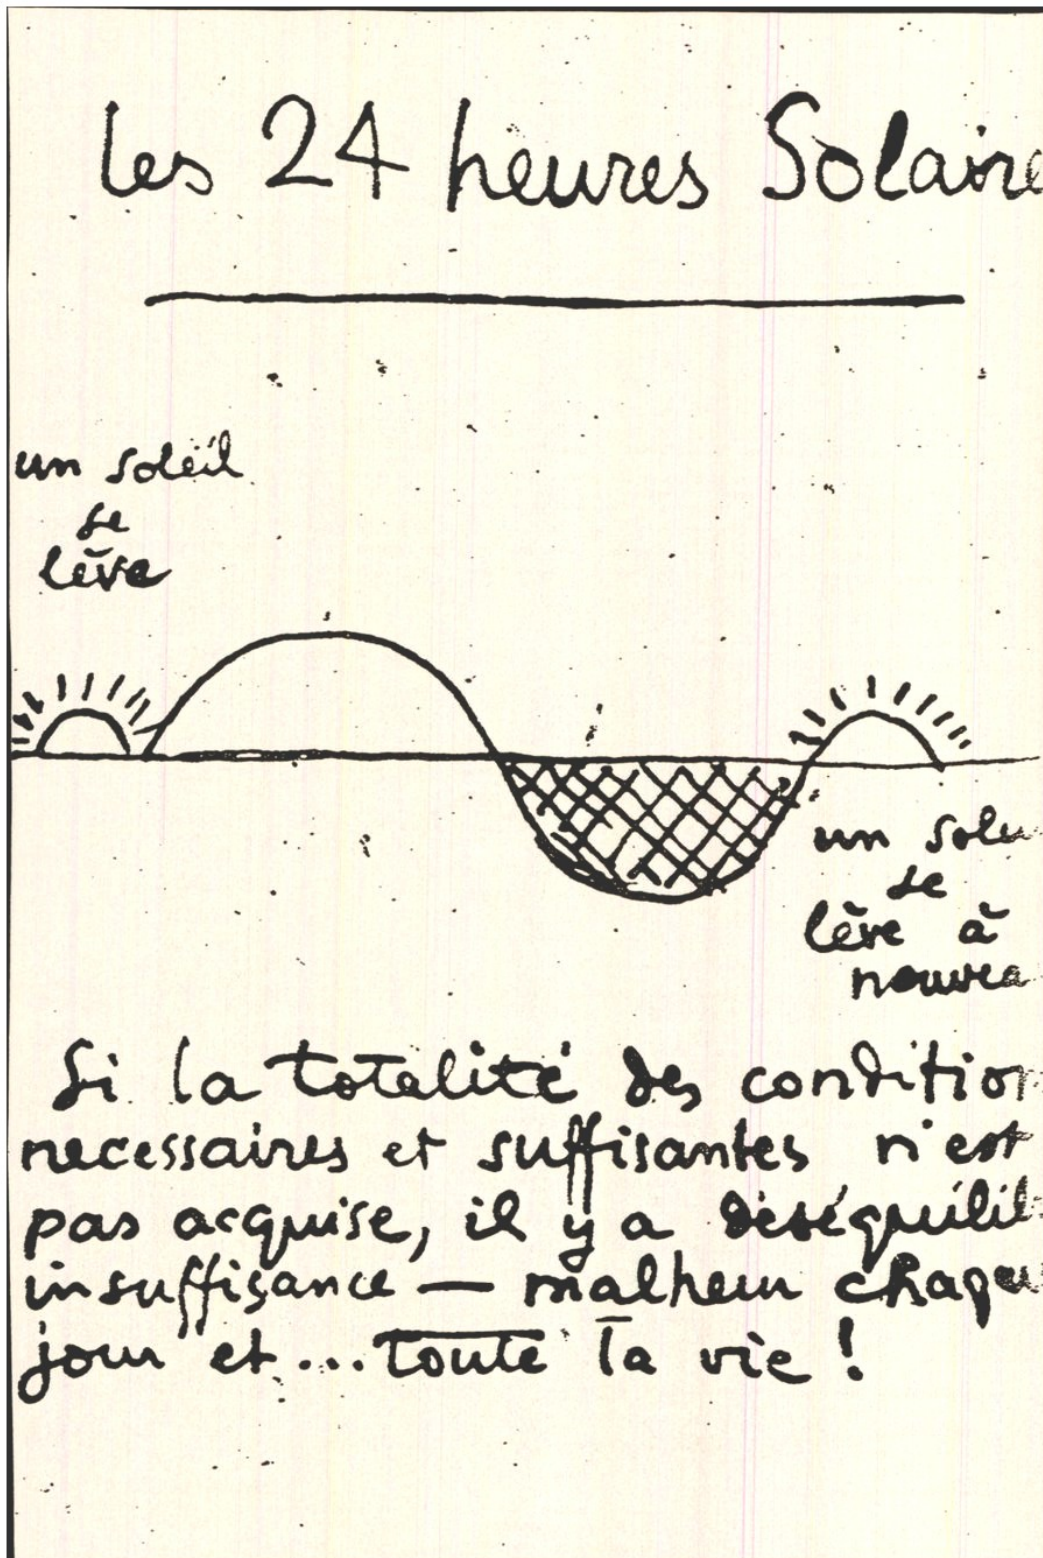 les 24 heures Solaire
un soleil
se
lève
un sole
se
lève à
nouvea
Si la totalité des condition
necessaires et suffisantes n'est
pas acquise, il y a déséquilib
insuffisance — malheur chaque
jour et... toute la vie !